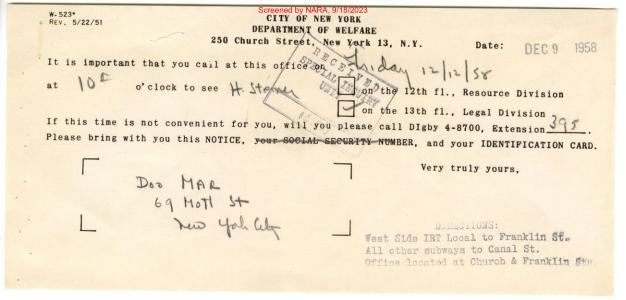 Screened by NARA, 9/18/2023
W-523*
REV. 5/22/51
CITY OF NEW YORK
DEPARTMENT OF WELFARE
250 Church Street, New York 13, N.Y.
Date: DEC 9 1958
It is important that you call at this office on Friday 12/12/58
at 10 o'clock to see H. on the 12th fl., Resource Division
on the 13th fl., Legal Division
RECEIVED
SPECIAL INQUIRY
UNIT
If this time is not convenient for you, will you please call DIgby 4-8700, Extension 395.
Please bring with you this NOTICE, your SOCIAL SECURITY NUMBER, and your IDENTIFICATION CARD.
Very truly yours,
Doo MAR
69 Mott St
New York City
DIRECTIONS:
West Side IRT Local to Franklin St.
All other subways to Canal St.
Office located at Church & Franklin Sts.